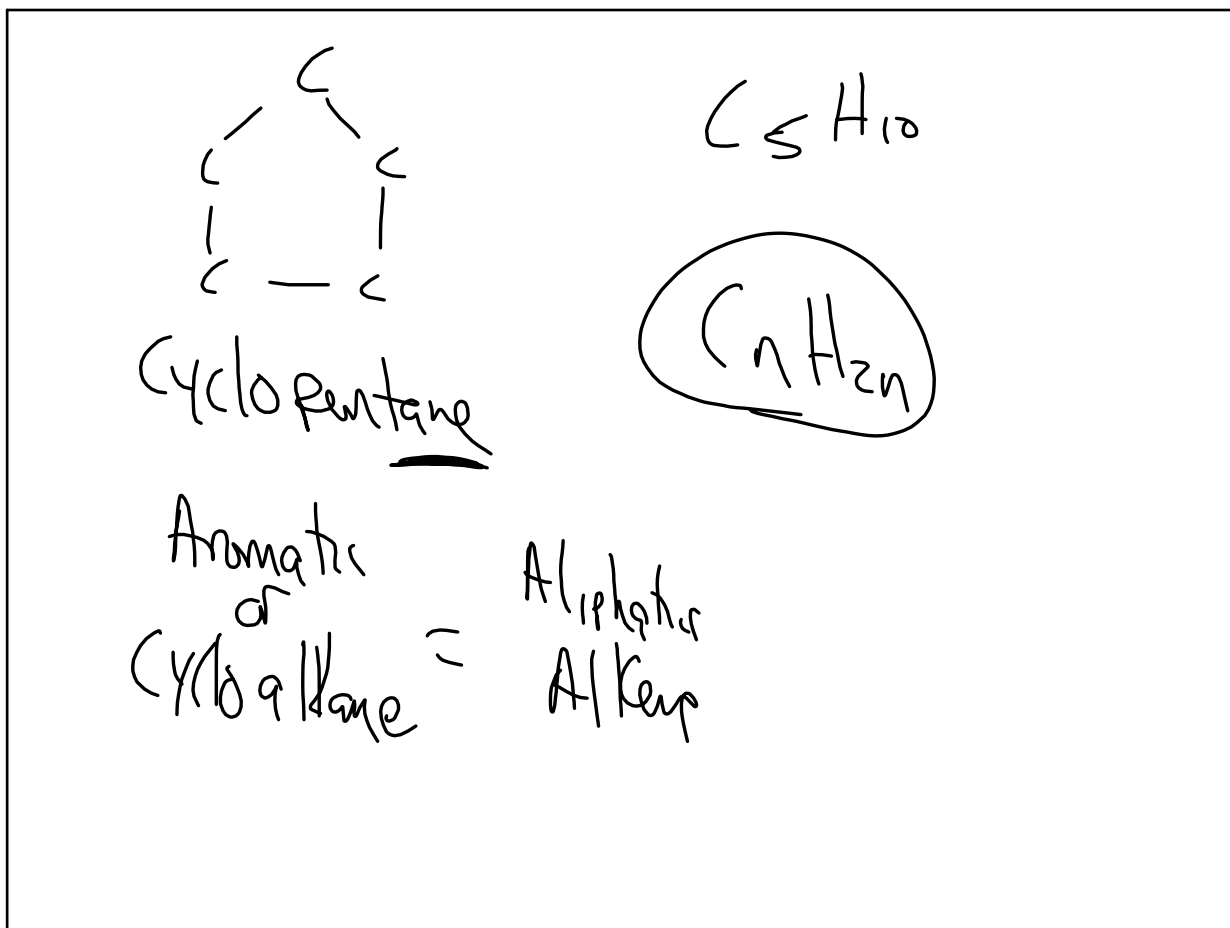 C
C C
C — C
C5H10
CnH2n
Cyclopentane
Aromatic
or
Cycloalkane
=
Aliphatic
Alkene